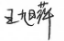 王旭萍